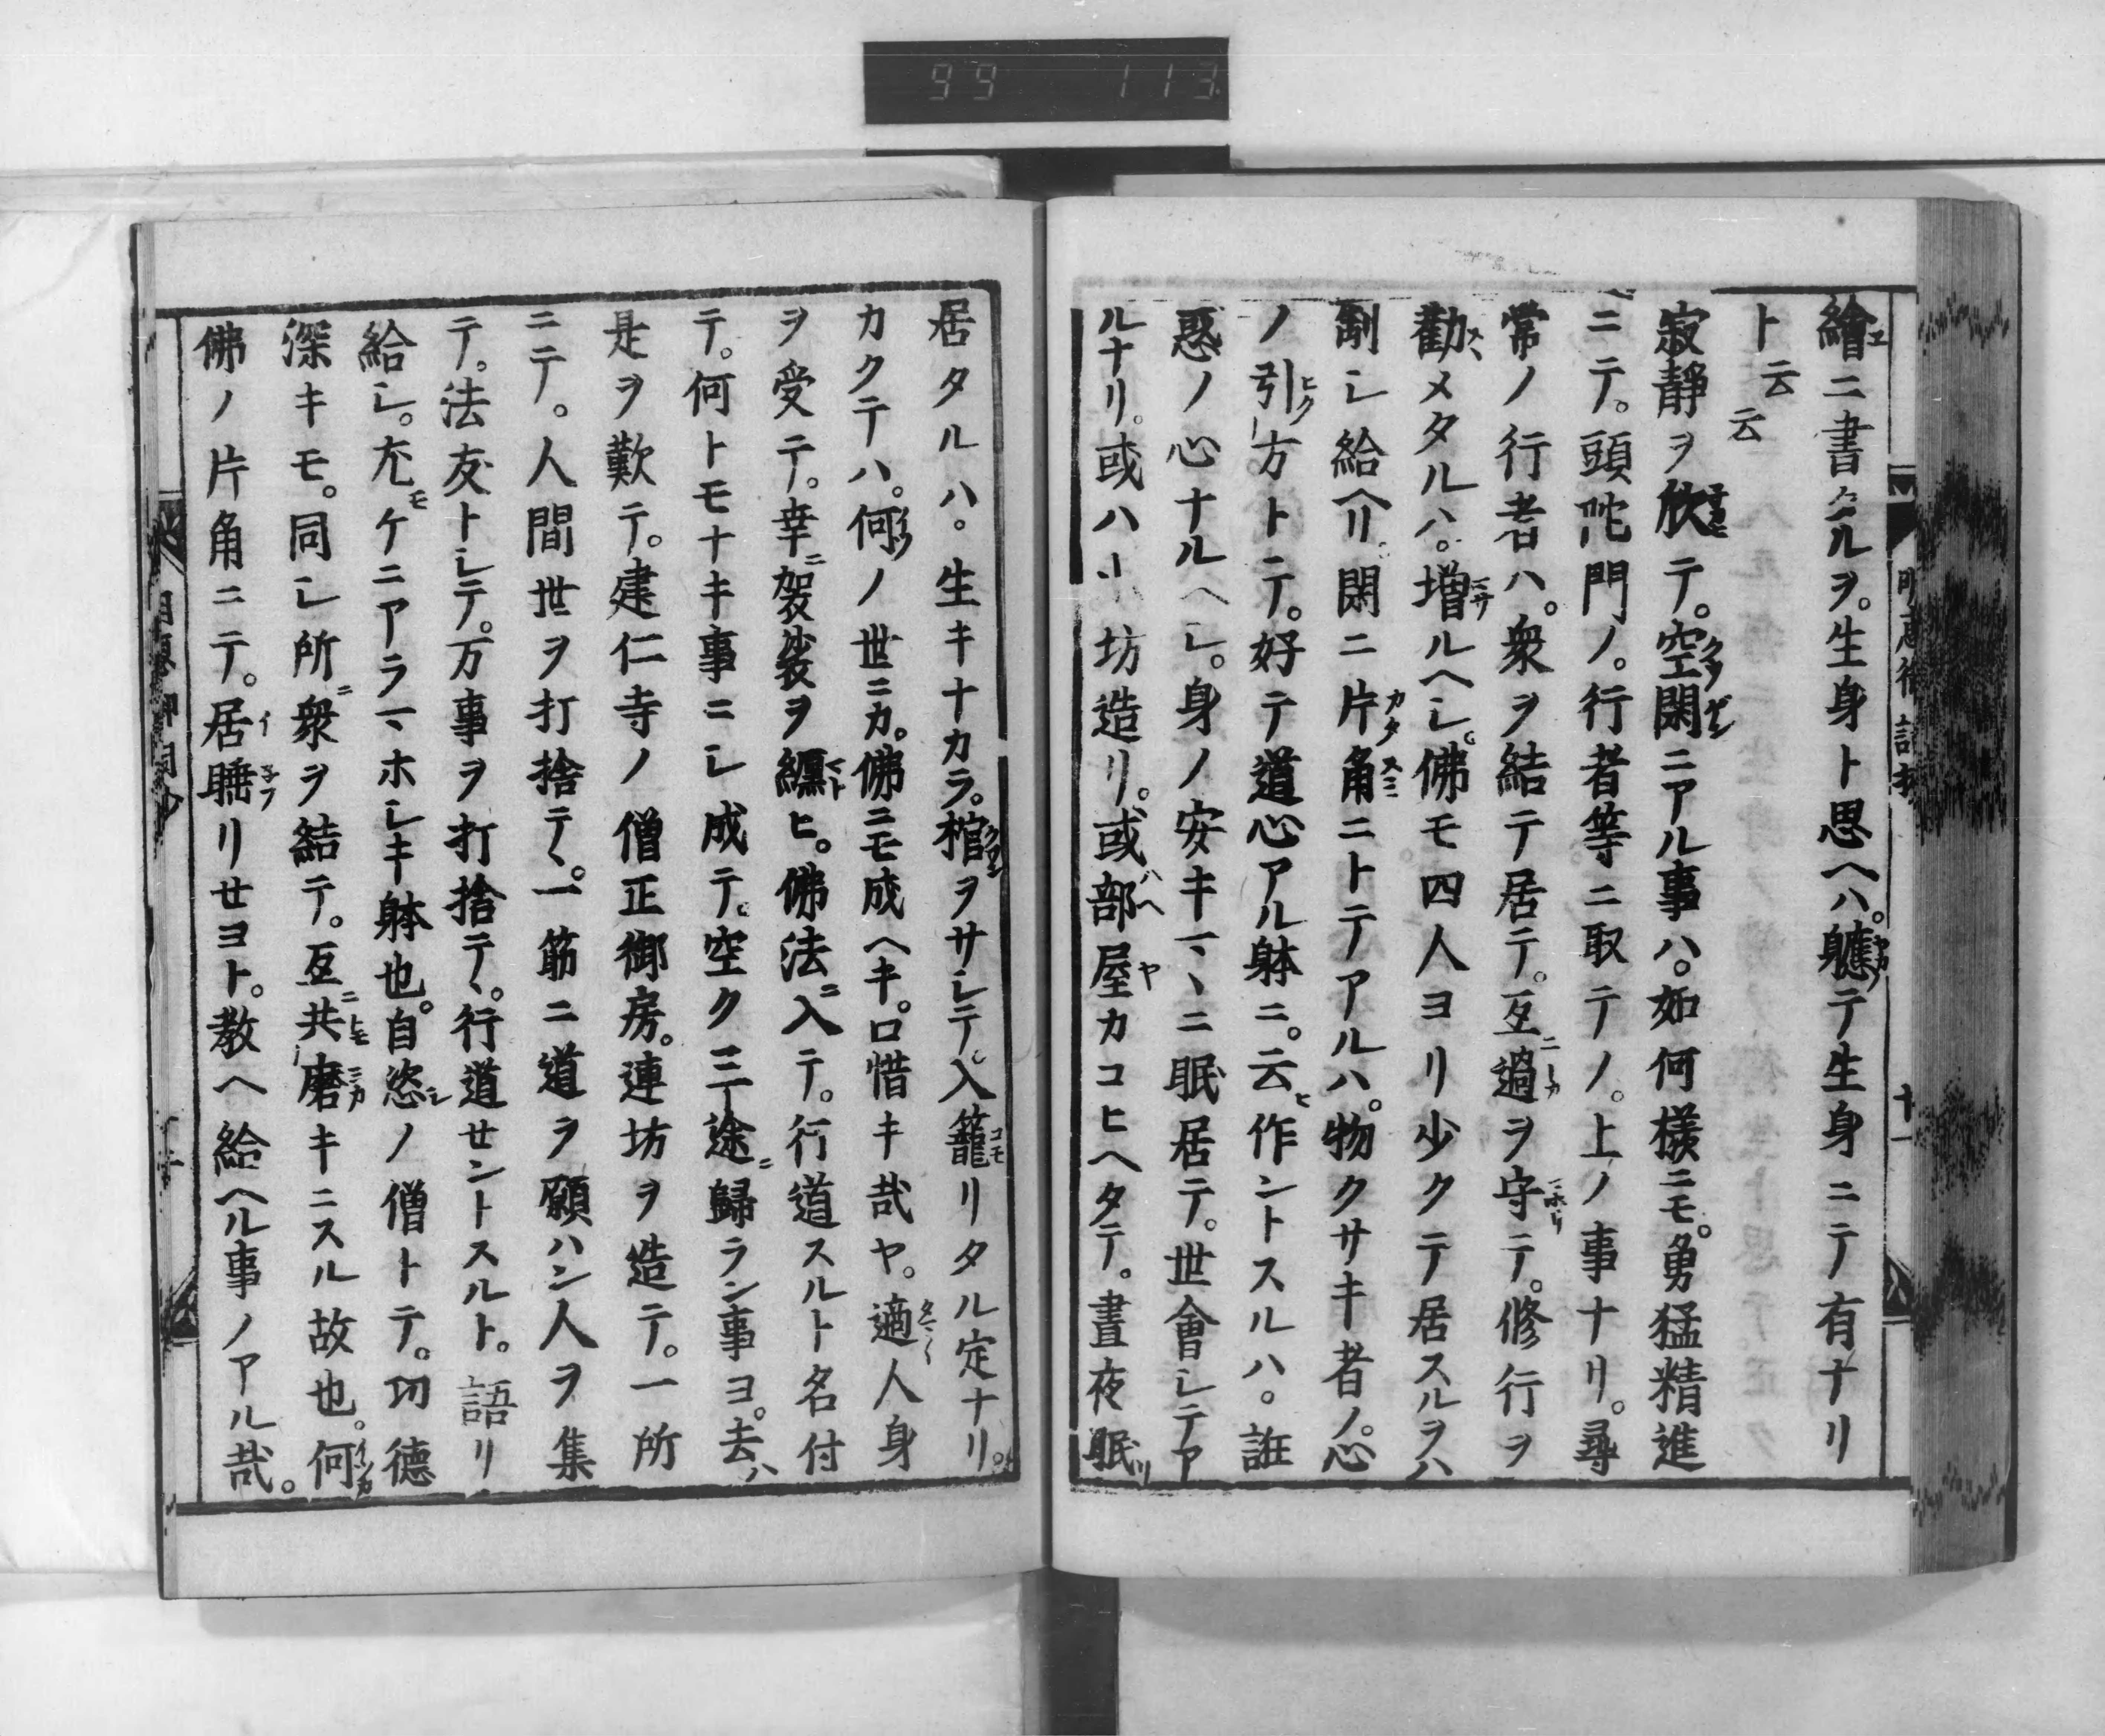 99 113
繪ニ書タルヲ。生身ト思ヘハ。軈テ生身ニテ有ナリ
ト云云
寂靜ヲ欣テ。空閑ニアル事ハ。如何樣ニモ。勇猛精進
ニテ。頭陀門ノ。行者等ニ取テノ。上ノ事ナリ。尋
常ノ行者ハ。衆ヲ結テ居テ。互過ヲ守テ。修行ヲ
勸メタルハ。増ルヘシ。佛モ四人ヨリ少クテ居スルヲハ
制シ給ヘリ。閑ニ片角ニトテアルハ。物クサキ者ノ。心
ノ引方トテ。好テ道心アル躰ニ。云作ントスルハ。誑
惑ノ心ナルヘシ。身ノ安キマヽニ眠居テ。世會シテア
ルナリ。或ハ小坊造リ。或部屋カコヒヘタテ。晝夜眠
居タルハ。生キナカラ。棺ヲサシテ。入籠リタル定ナリ。
カクテハ。何ノ世ニカ。佛ニモ成ヘキ。口惜キ哉ヤ。適人身
ヲ受テ。幸袈裟ヲ纒ヒ。佛法入テ。行道スルト名付
テ。何トモナキ事ニシ成テ。空ク三途歸ラン事ヨ。去ハ
是ヲ歎テ。建仁寺ノ僧正御房。連坊ヲ造テ。一所
ニテ。人間世ヲ打捨テヽ。一筋ニ道ヲ願ハン人ヲ集
テ。法友トシテ。万事ヲ打捨テヽ。行道センルト。語リ
給シ。尤ケニアラマホシキ躰也。自恣ノ僧トテ。功德
深キモ。同シ所衆ヲ結テ。互共磨キニスル故也。何
佛ノ片角ニテ。居睡リセヨト。教ヘ給ヘル事ノアル哉。